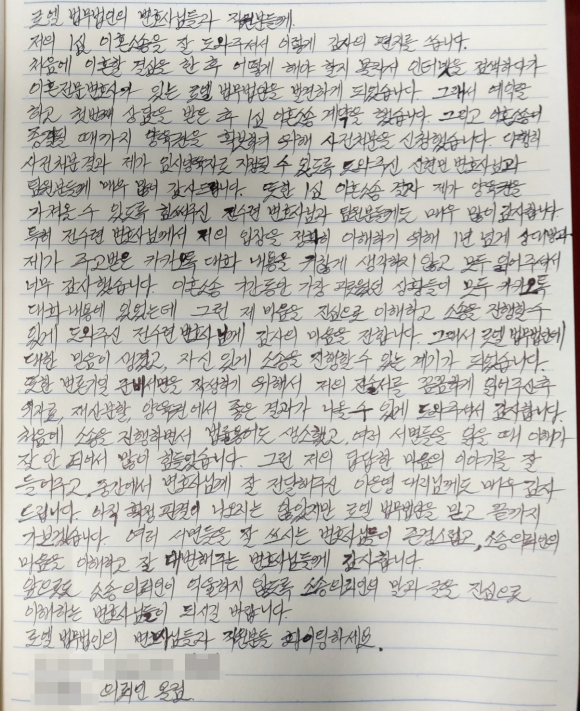 로엘 법무법인의 변호사님들과 직원분들께.
저의 1심 이혼소송을 잘 도와주셔서 이렇게 감사의 편지를 씁니다.
처음에 이혼할 결심을 한 후 어떻게 해야 할지 몰라서 인터넷을 검색하다가
이혼전문변호사가 있는 로엘 법무법인을 발견하게 되었습니다. 그래서 예약을
하고 첫번째 상담을 받은 후 1심 이혼소송 계약을 했습니다. 그리고 이혼소송이
종결될 때까지 양육권을 확보하기 위해 사전처분을 신청했습니다. 다행히
사전처분결과 제가 임시양육자로 지정될 수 있도록 도와주신 변호사님과
팀원분들께 매우 많이 감사드립니다. 또한 1심 이혼소송 결과 제가 양육권을
가져올 수 있도록 힘써주신 전수련 변호사님과 팀원분들께도 매우 많이 감사합니다
특히 전수련 변호사님께서 저의 입장을 정확히 이해하기 위해 1년 넘게 상대방과
제가 주고받은 카카오톡 대화 내용을 귀찮게 생각하지 않고 모두 읽어주셔서
너무 감사했습니다. 이혼소송 기간동안 가장 괴로웠던 상황들이 모두 카카오톡
대화내용에 있었는데 그런 제 마음을 진심으로 이해하고 소송을 진행할 수
있게 도와주신 전수련 변호사님께 감사의 마음을 전합니다. 그래서 로엘 법무법인에
대한 믿음이 생겼고, 자신 있게 소송을 진행할 수 있는 계기가 되었습니다.
또한 변론기일 준비서면을 작성하기 위해서 저의 진술서를 꼼꼼하게 읽어주신 후
위자료, 재산분할, 양육권에서 좋은 결과가 나올 수 있게 도와주셔서 감사합니다.
처음에 소송을 진행하면서 법률용어도 생소했고, 여러 서면들을 읽을 때 이해가
잘 안 되어서 많이 힘들었습니다. 그런 저의 답답한 마음의 이야기를 잘
들어주고, 중간에서 변호사님께 잘 전달해주신 이은영 대리님께도 매우 감사
드립니다. 아직 확정 판결이 나오지는 않았지만 로엘 법무법인을 믿고 끝까지
가보겠습니다. 여러 서면들을 잘 쓰시는 변호사님들이 존경스럽고, 소송의뢰인의
마음을 이해하고 잘 대변해주는 변호사님들께 감사합니다.
앞으로도 소송의뢰인이 억울하지 않도록 소송의뢰인의 말과 글을 진심으로
이해하는 변호사님들이 되시길 바랍니다.
로엘 법무법인의 변호사님들과 직원분들 화이팅하세요.
의뢰인 올림